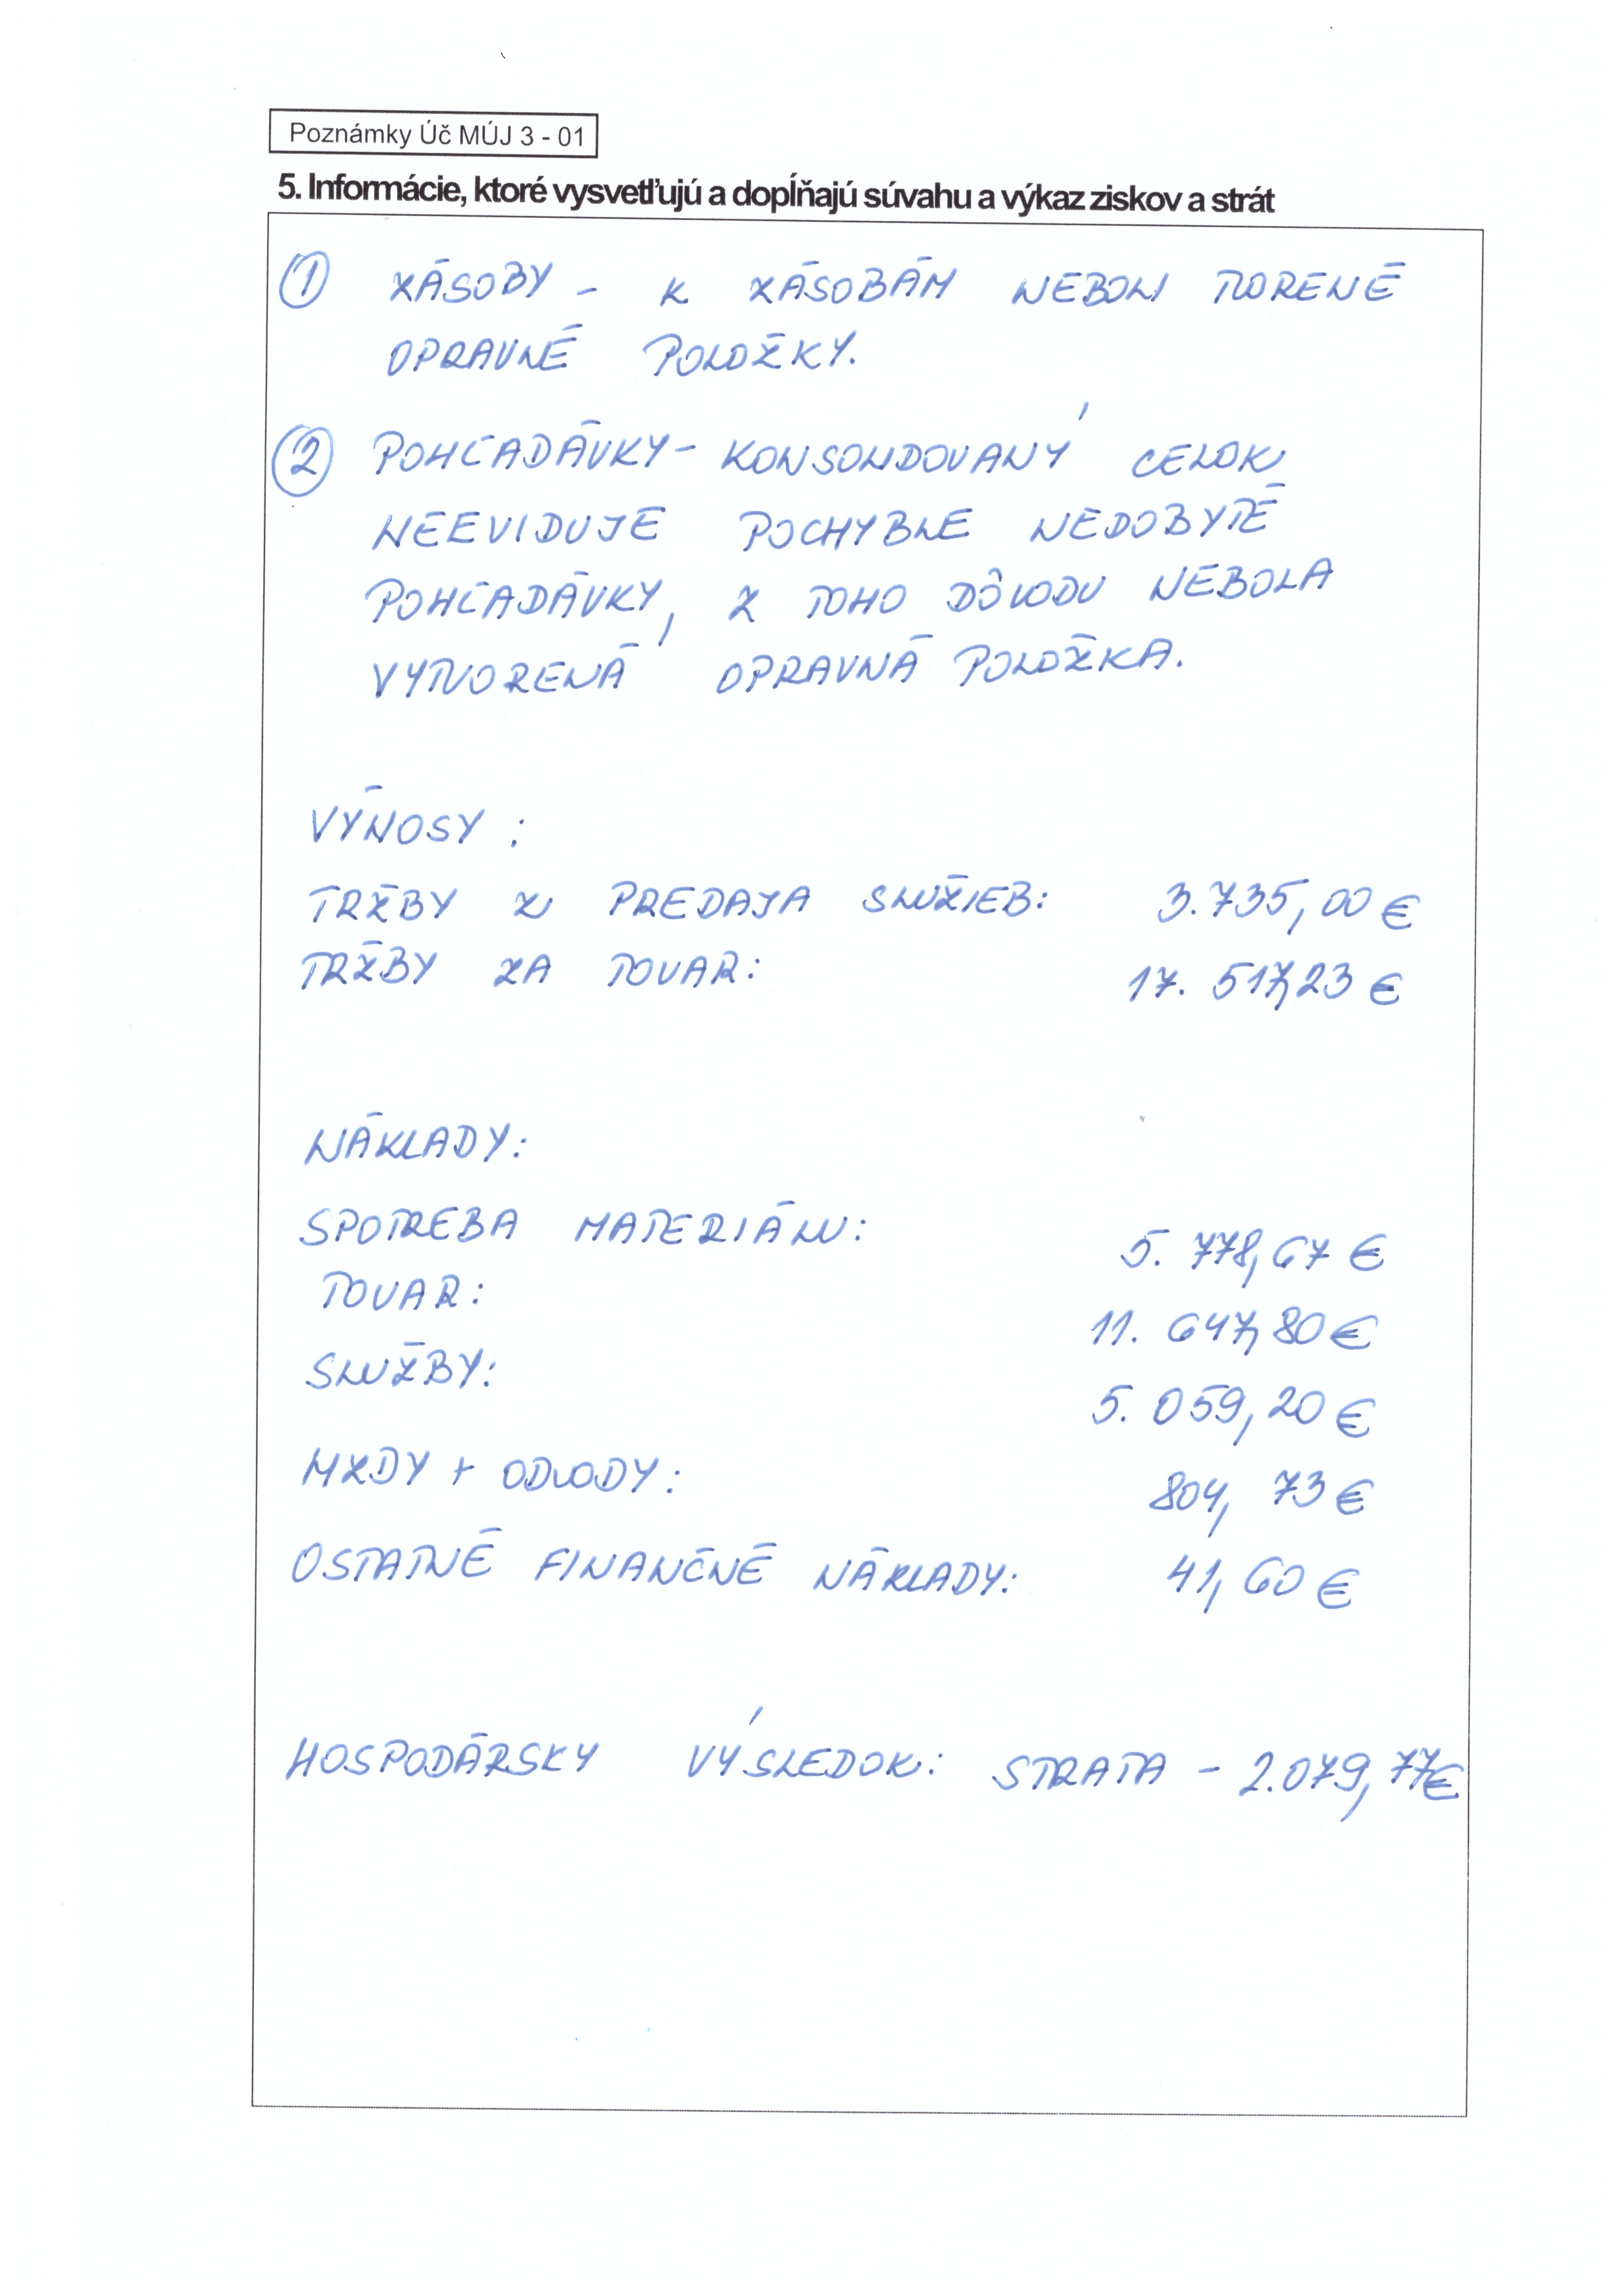 Poznámky Úč MÚJ 3 - 01
5. Informácie, ktoré vysvetľujú a dopĺňajú súvahu a výkaz ziskov a strát
① ZÁSOBY - K ZÁSOBÁM NEBOLI TVORENÉ
OPRAVNÉ POLOŽKY.
② POHĽADÁVKY - KONSOLIDOVANÝ CELOK
NEEVIDUJE POCHYBLE NEDOBYTÉ
POHĽADÁVKY, Z TOHO DÔVODU NEBOLA
VYTVORENÁ OPRAVNÁ POLOŽKA.
VÝNOSY :
TRŽBY Z PREDAJA SLUŽIEB: 3.735,00 €
TRŽBY ZA TOVAR: 17. 517,23 €
NÁKLADY:
SPOTREBA MATERIÁLU: 5. 778,67 €
TOVAR: 11. 647,80 €
SLUŽBY: 5. 059,20 €
MZDY + ODVODY: 804, 73 €
OSTATNÉ FINANČNÉ NÁKLADY: 41, 60 €
HOSPODÁRSKY VÝSLEDOK: STRATA - 2.079,77€